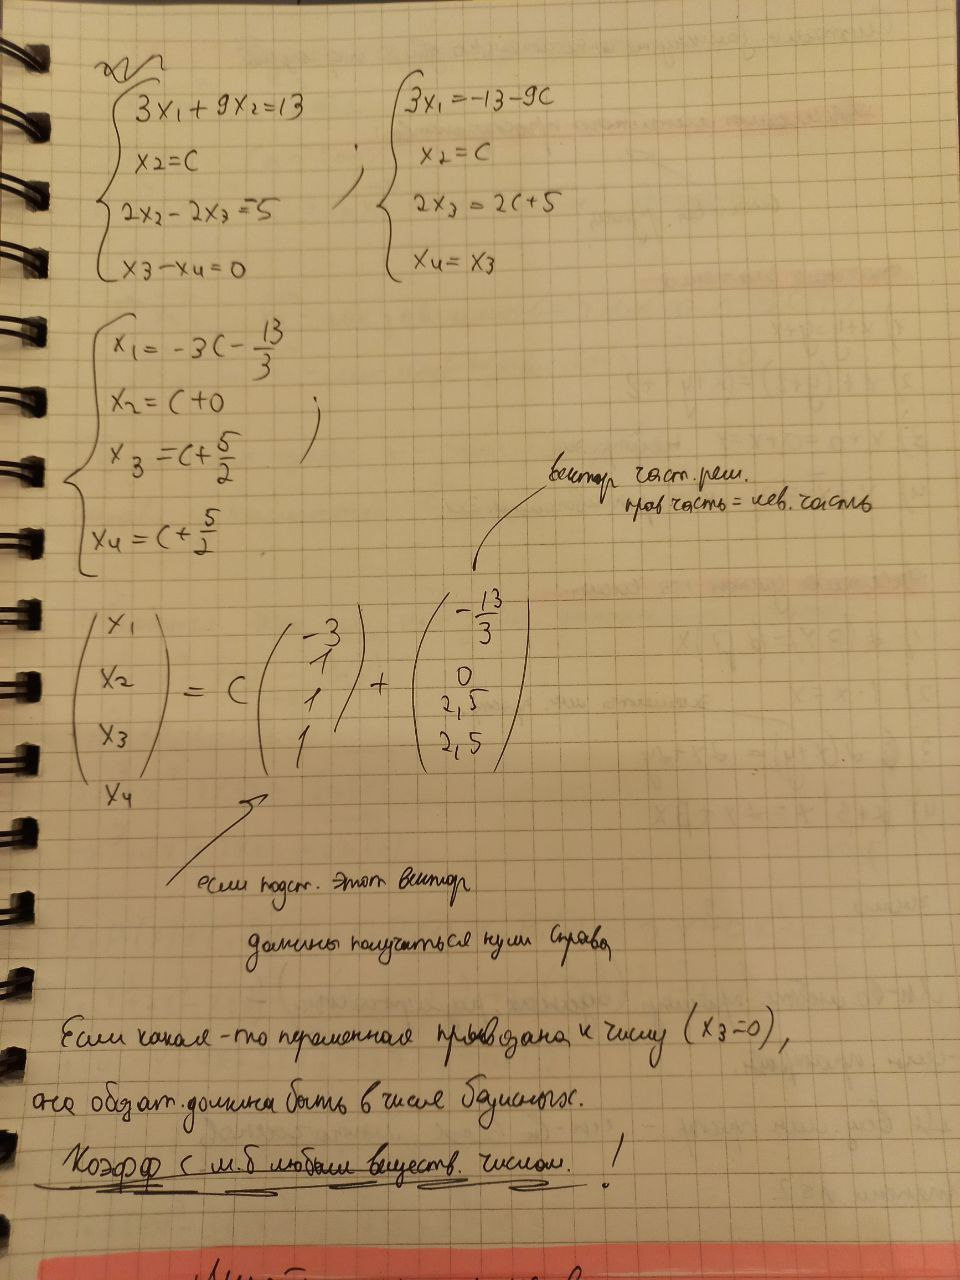 3x₁ + 9x₂ = 13
x₂ = C
2x₂ - 2x₃ = -5
x₃ - x₄ = 0
;
3x₁ = -13 - 9C
x₂ = C
2x₃ = 2C + 5
x₄ = x₃
x₁ = -3C - 13/3
x₂ = C + 0
x₃ = C + 5/2
x₄ = C + 5/2
;
вектор част. реш.
прав часть = лев. часть
(x₁ x₂ x₃ x₄) = C (-3 1 1 1) + (-13/3 0 2,5 2,5)
если подст. этот вектор
должны получиться нули справа
Если какая-то переменная привязана к числу (x₃=0),
она обязат. должна быть в числе базисных.
Коэфф C м.б любым веществ. числом. !